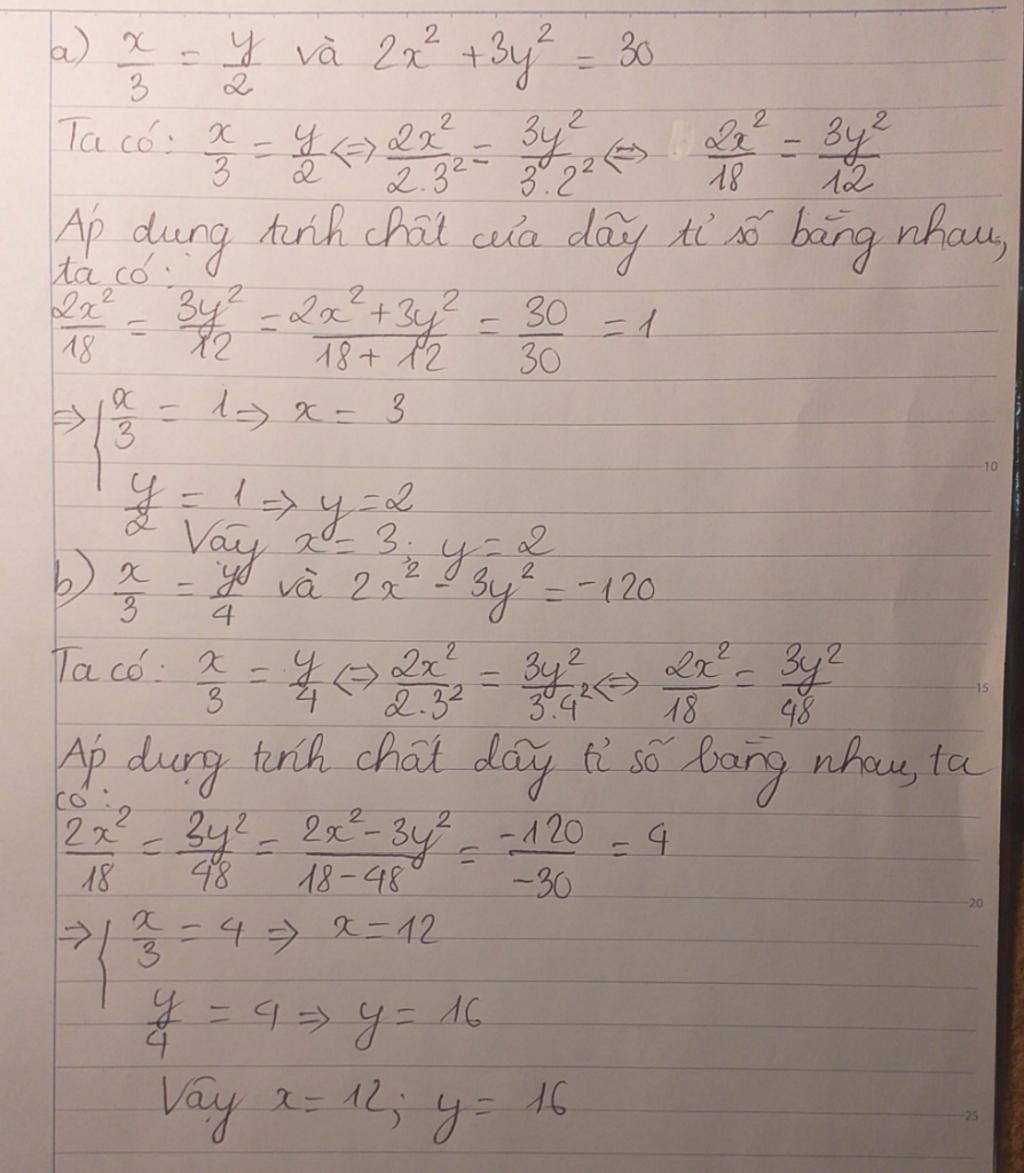 a) x/3 = y/2 và 2x² + 3y² = 30
Ta có: x/3 = y/2 <=> 2x²/2.3² = 3y²/3.2² <=> 2x²/18 = 3y²/12
Áp dụng tính chất của dãy tỉ số bằng nhau,
ta có:
2x²/18 = 3y²/12 = 2x² + 3y²/18 + 12 = 30/30 = 1
=> { x/3 = 1 => x = 3
y/2 = 1 => y = 2
Vậy x = 3; y = 2
b) x/3 = y/4 và 2x² - 3y² = -120
Ta có: x/3 = y/4 <=> 2x²/2.3² = 3y²/3.4² <=> 2x²/18 = 3y²/48
Áp dụng tính chất dãy tỉ số bằng nhau, ta
có:
2x²/18 = 3y²/48 = 2x² - 3y²/18 - 48 = -120/-30 = 4
=> { x/3 = 4 => x = 12
y/4 = 4 => y = 16
Vậy x = 12; y = 16
10
15
20
25